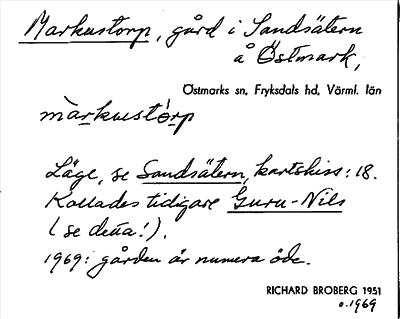 Markustorp, gård i Sandsätern
å Östmark,
Östmarks sn, Fryksdals hd, Värml. län
màrkustó̀rp
Läge, se Sandsätern, kartskiss: 18.
Kallades tidigare Guru-Nils
(se detta!).
1969: gården är numera öde.
RICHARD BROBERG 1951
o. 1969